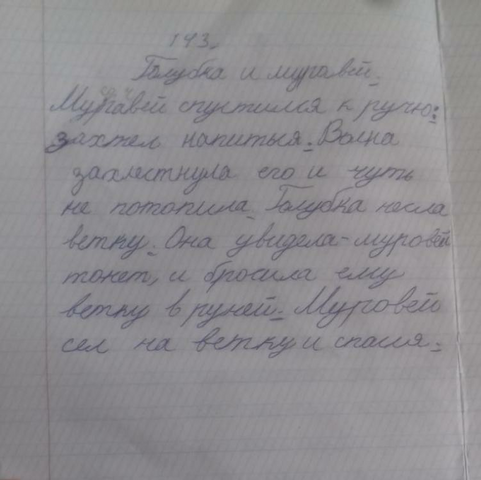 143.
Голубка и муравей.
Муравей спустился к ручью:
захтел напиться. Волна
захлестнула его и чуть
не потопила. Голубка несла
ветку. Она увидела-муровей
тонет, и бросила ему
ветку в ручей. Муровей
сел на ветку и спасся.